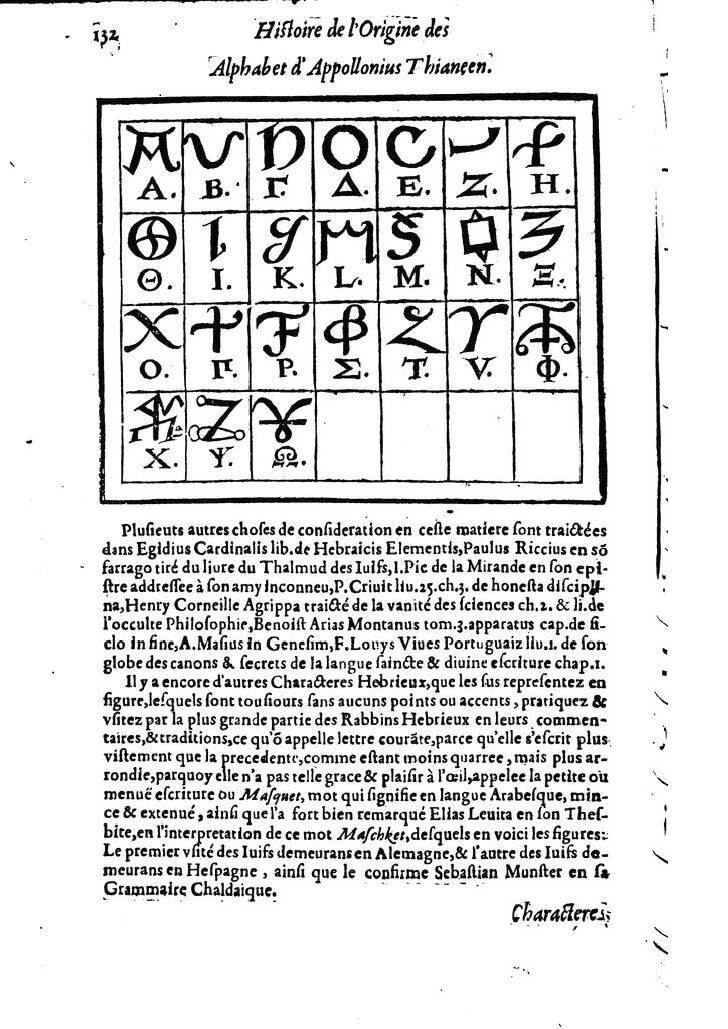 132
Hiſtoire de l'Origine des
Alphabet d'Appollonius Thianeen.
A. B. Γ. Δ. E. Z. H.
Θ. I. K. L. M. N. Ξ.
O. Π. P. Σ. T. V. Φ.
X. Ψ. Ω.
Pluſieuts autres choſes de conſideration en ceſte matiere ſont traictées
dans Egidius Cardinalis lib. de Hebraicis Elementis, Paulus Riccius en sō
farrago tiré du liure du Thalmud des Iuifs, I. Pic de la Mirande en ſon epi-
ſtre addreſſee à ſon amy inconneu, P. Criuit liu. 25. ch. 3. de honeſta diſcipli-
na, Henry Corneille Agrippa traicté de la vanité des ſciences ch. 2. & li. de
l'occulte Philoſophie, Benoiſt Arias Montanus tom. 3. apparatus cap. de ſi-
clo in fine, A. Maſius in Geneſim, F. Louys Viues Portuguaiz liu. 1. de ſon
globe des canons & ſecrets de la langue ſaincte & diuine eſcriture chap. 1.
Il y a encore d'autres Characteres Hebrieux, que les ſus repreſentez en
figure, leſquels ſont touſiours ſans aucuns points ou accents, pratiquez &
vſitez par la plus grande partie des Rabbins Hebrieux en leurs commen-
taires, & traditions, ce qu'ō appelle lettre courāte, parce qu'elle s'eſcrit plus
viſtement que la precedente, comme eſtant moins quarree, mais plus ar-
rondie, parquoy elle n'a pas telle grace & plaiſir à l'œil, appelee la petite ou
menuë eſcriture ou Maſquet, mot qui ſignifie en langue Arabeſque, min-
ce & extenué, ainſi que l'a fort bien remarqué Elias Leuita en ſon Theſ-
bite, en l'interpretation de ce mot Maſchket, deſquels en voici les figures:
Le premier vſité des Iuifs demeurans en Alemagne, & l'autre des Iuifs de-
meurans en Heſpagne, ainſi que le confirme Sebaſtian Munſter en ſa
Grammaire Chaldaique.
Characteres